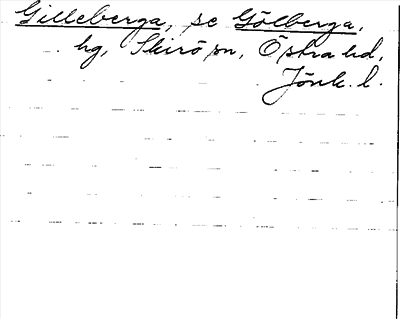 Gilleberga, se Gölberga,
hg, Skirö sn, Östra hd,
Jönk. l.